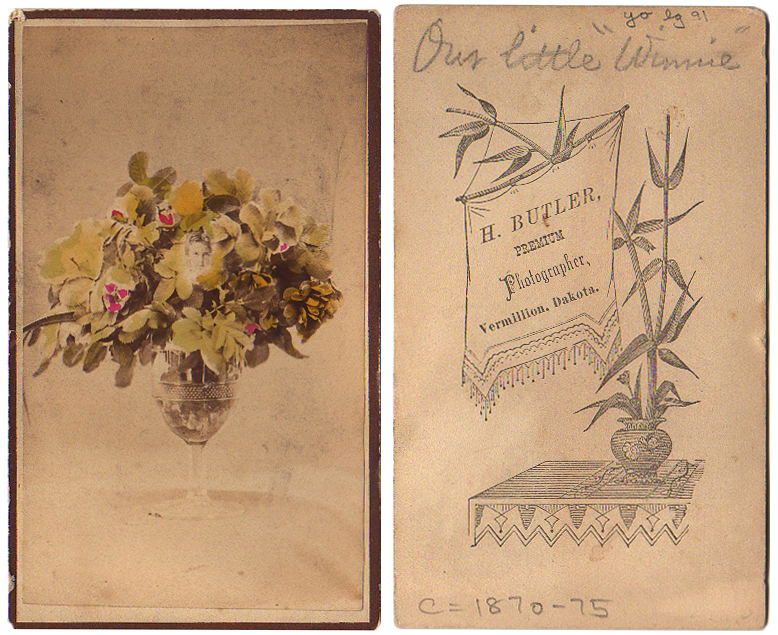 Our little "Winnie"
H. BUTLER,
PREMIUM
Photographer,
Vermillion, Dakota.
C = 1870-75